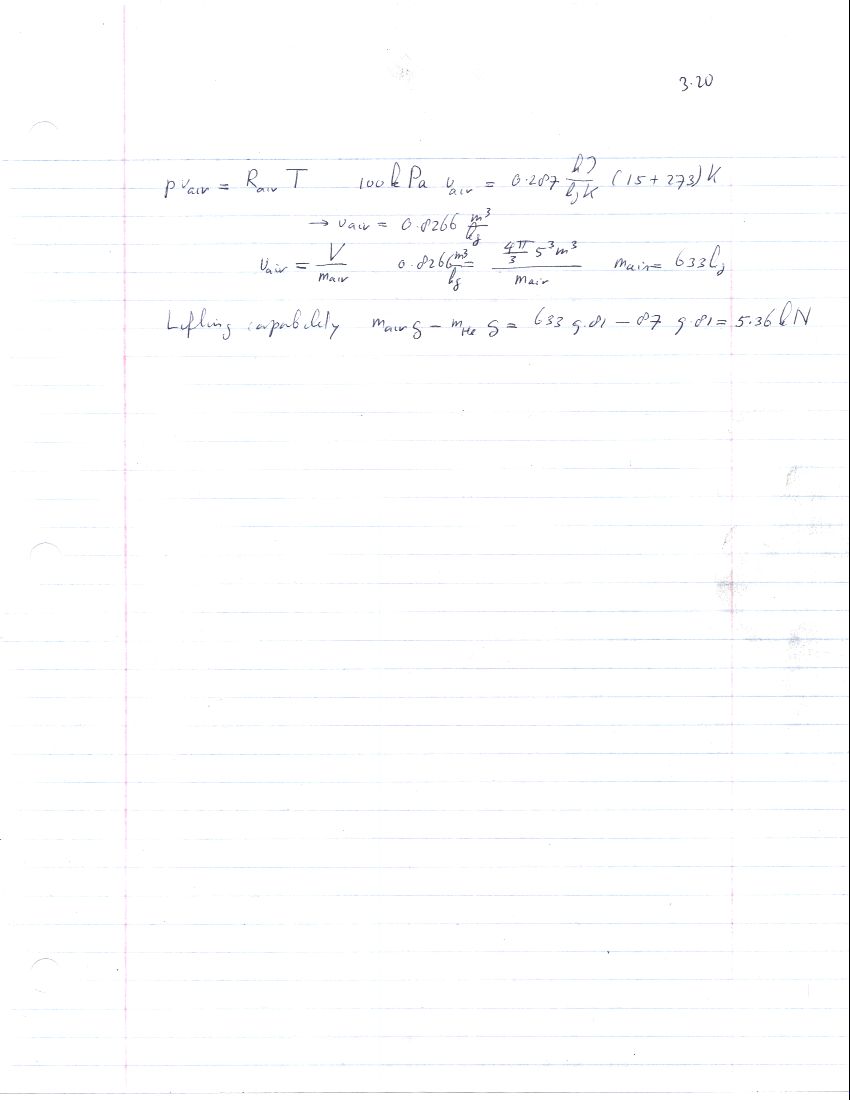 3.20
p v_air = R_air T 100 kPa v_air = 0.287 kJ/kg K (15 + 273) K
→ v_air = 0.8266 m³/kg
v_air = V/m_air 0.8266 m³/kg = (4π/3 5³ m³)/m_air m_air = 633 kg
Lifting capability m_air g − m_He g = 633 9.81 − 87 9.81 = 5.36 kN